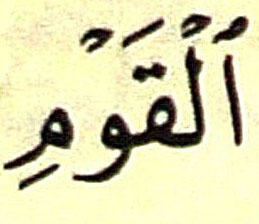 اُلْقَوْمِ